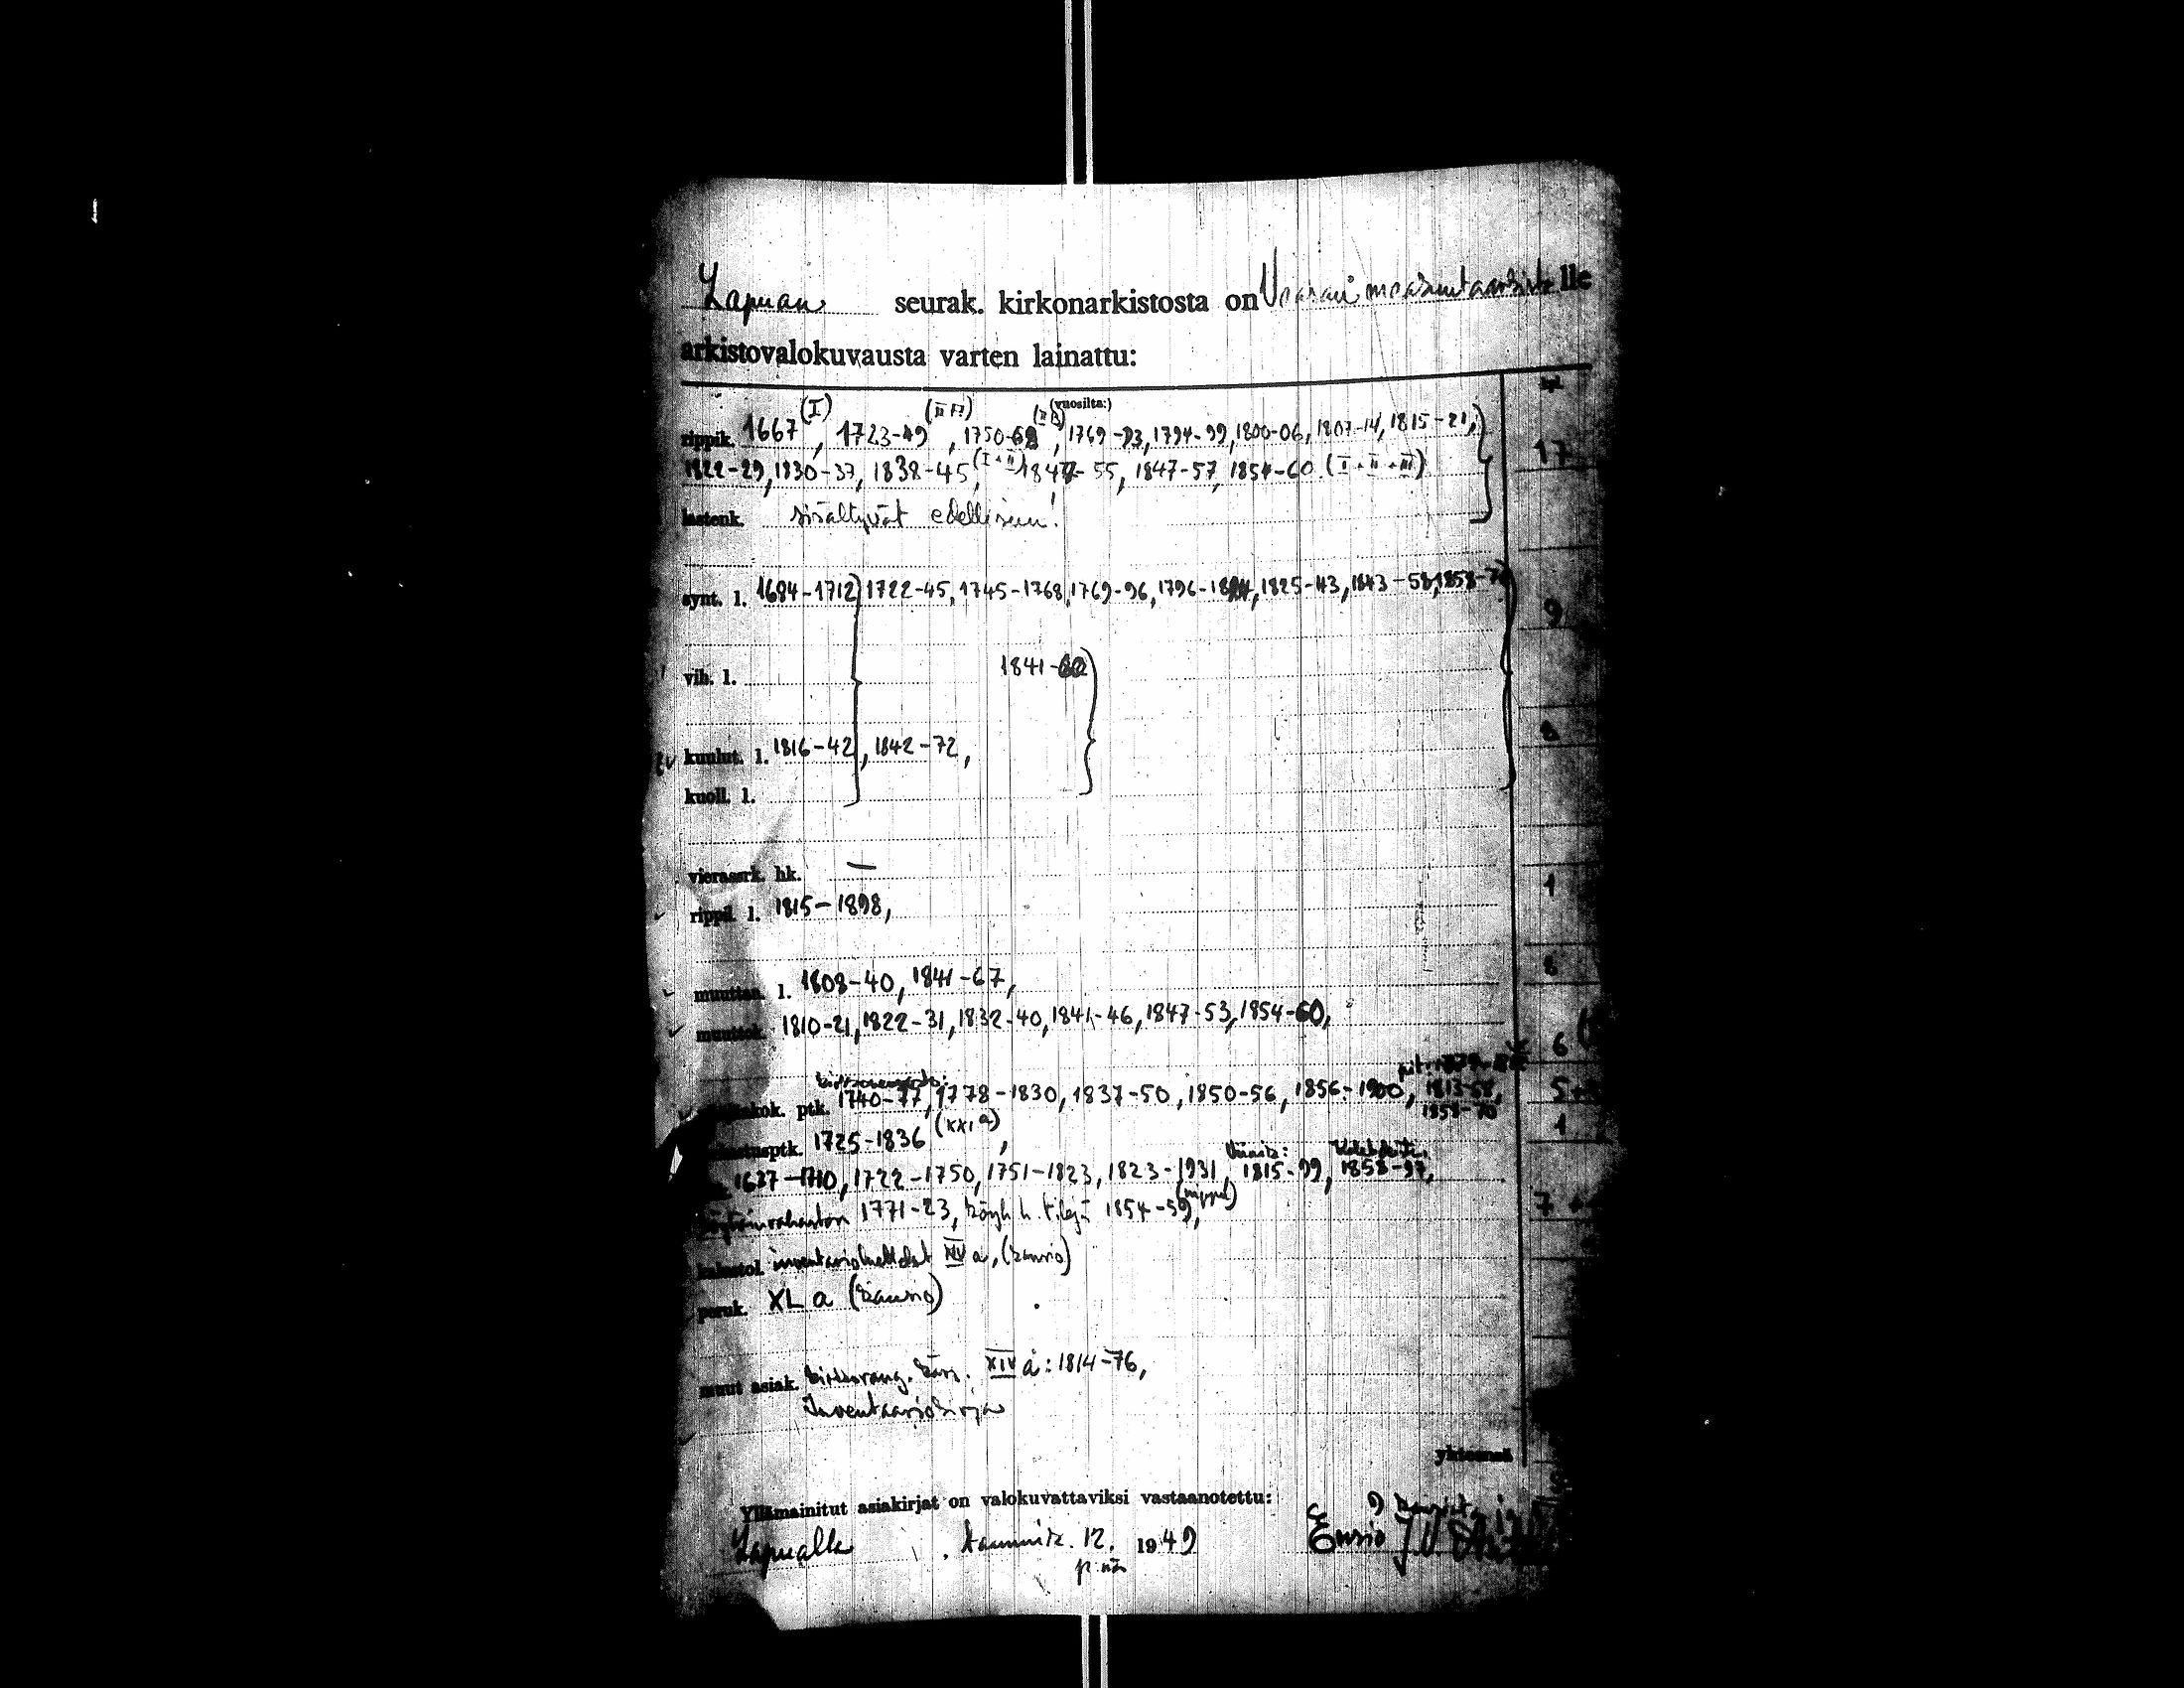 Lapuan seurak. kirkonarkistosta on Vaasan maakuntaarkistolle
arkistovalokuvausta varten lainattu:
(vuosilta:)
rippik. 1667 (I), 1723-49, 1750-68, 1769-93, 1794-99, 1800-06, 1807-14, 1815-21, 17
1822-29, 1830-37, 1838-45, (I+II) 1847-55, 1847-57, 1854-60 (I+II+III)
lastenk. sisältyvät edellisiin!
synt. l. 1694-1712 1722-45, 1745-1768, 1769-96, 1796-18, 1825-43, 1843-58, 1858- 9
vih. l. 1841-60
kuulut. l. 1816-42, 1842-72, 8
kuoll. l.
vierassrk. hk. —
rippil. l. 1815-1898, 1
muuttan. l. 1808-40, 1841-67, 8
muuttok. 1810-21, 1822-31, 1832-40, 1841-46, 1847-53, 1854-60, 6
kok. ptk. 1740-77, 1778-1830, 1837-50, 1850-56, 1856-1900, 1813-58, 5
1858-70
ptk. 1725-1836 (XXI a), 1
1637-1710, 1722-1750, 1751-1823, 1823-1931, 1815-99, 1858-97,
1771-23, 1854-59, 7
kalustol. inventarioluettelot XIV a, (kansio)
peruk. XL a (kansio)
muut asiak. XIV a: 1814-76,
Inventaariokirja
yhteensä
Yllämainitut asiakirjat on valokuvattaviksi vastaanotettu:
Lapualla, tammik. 12. 1949 Ensio
p:nä